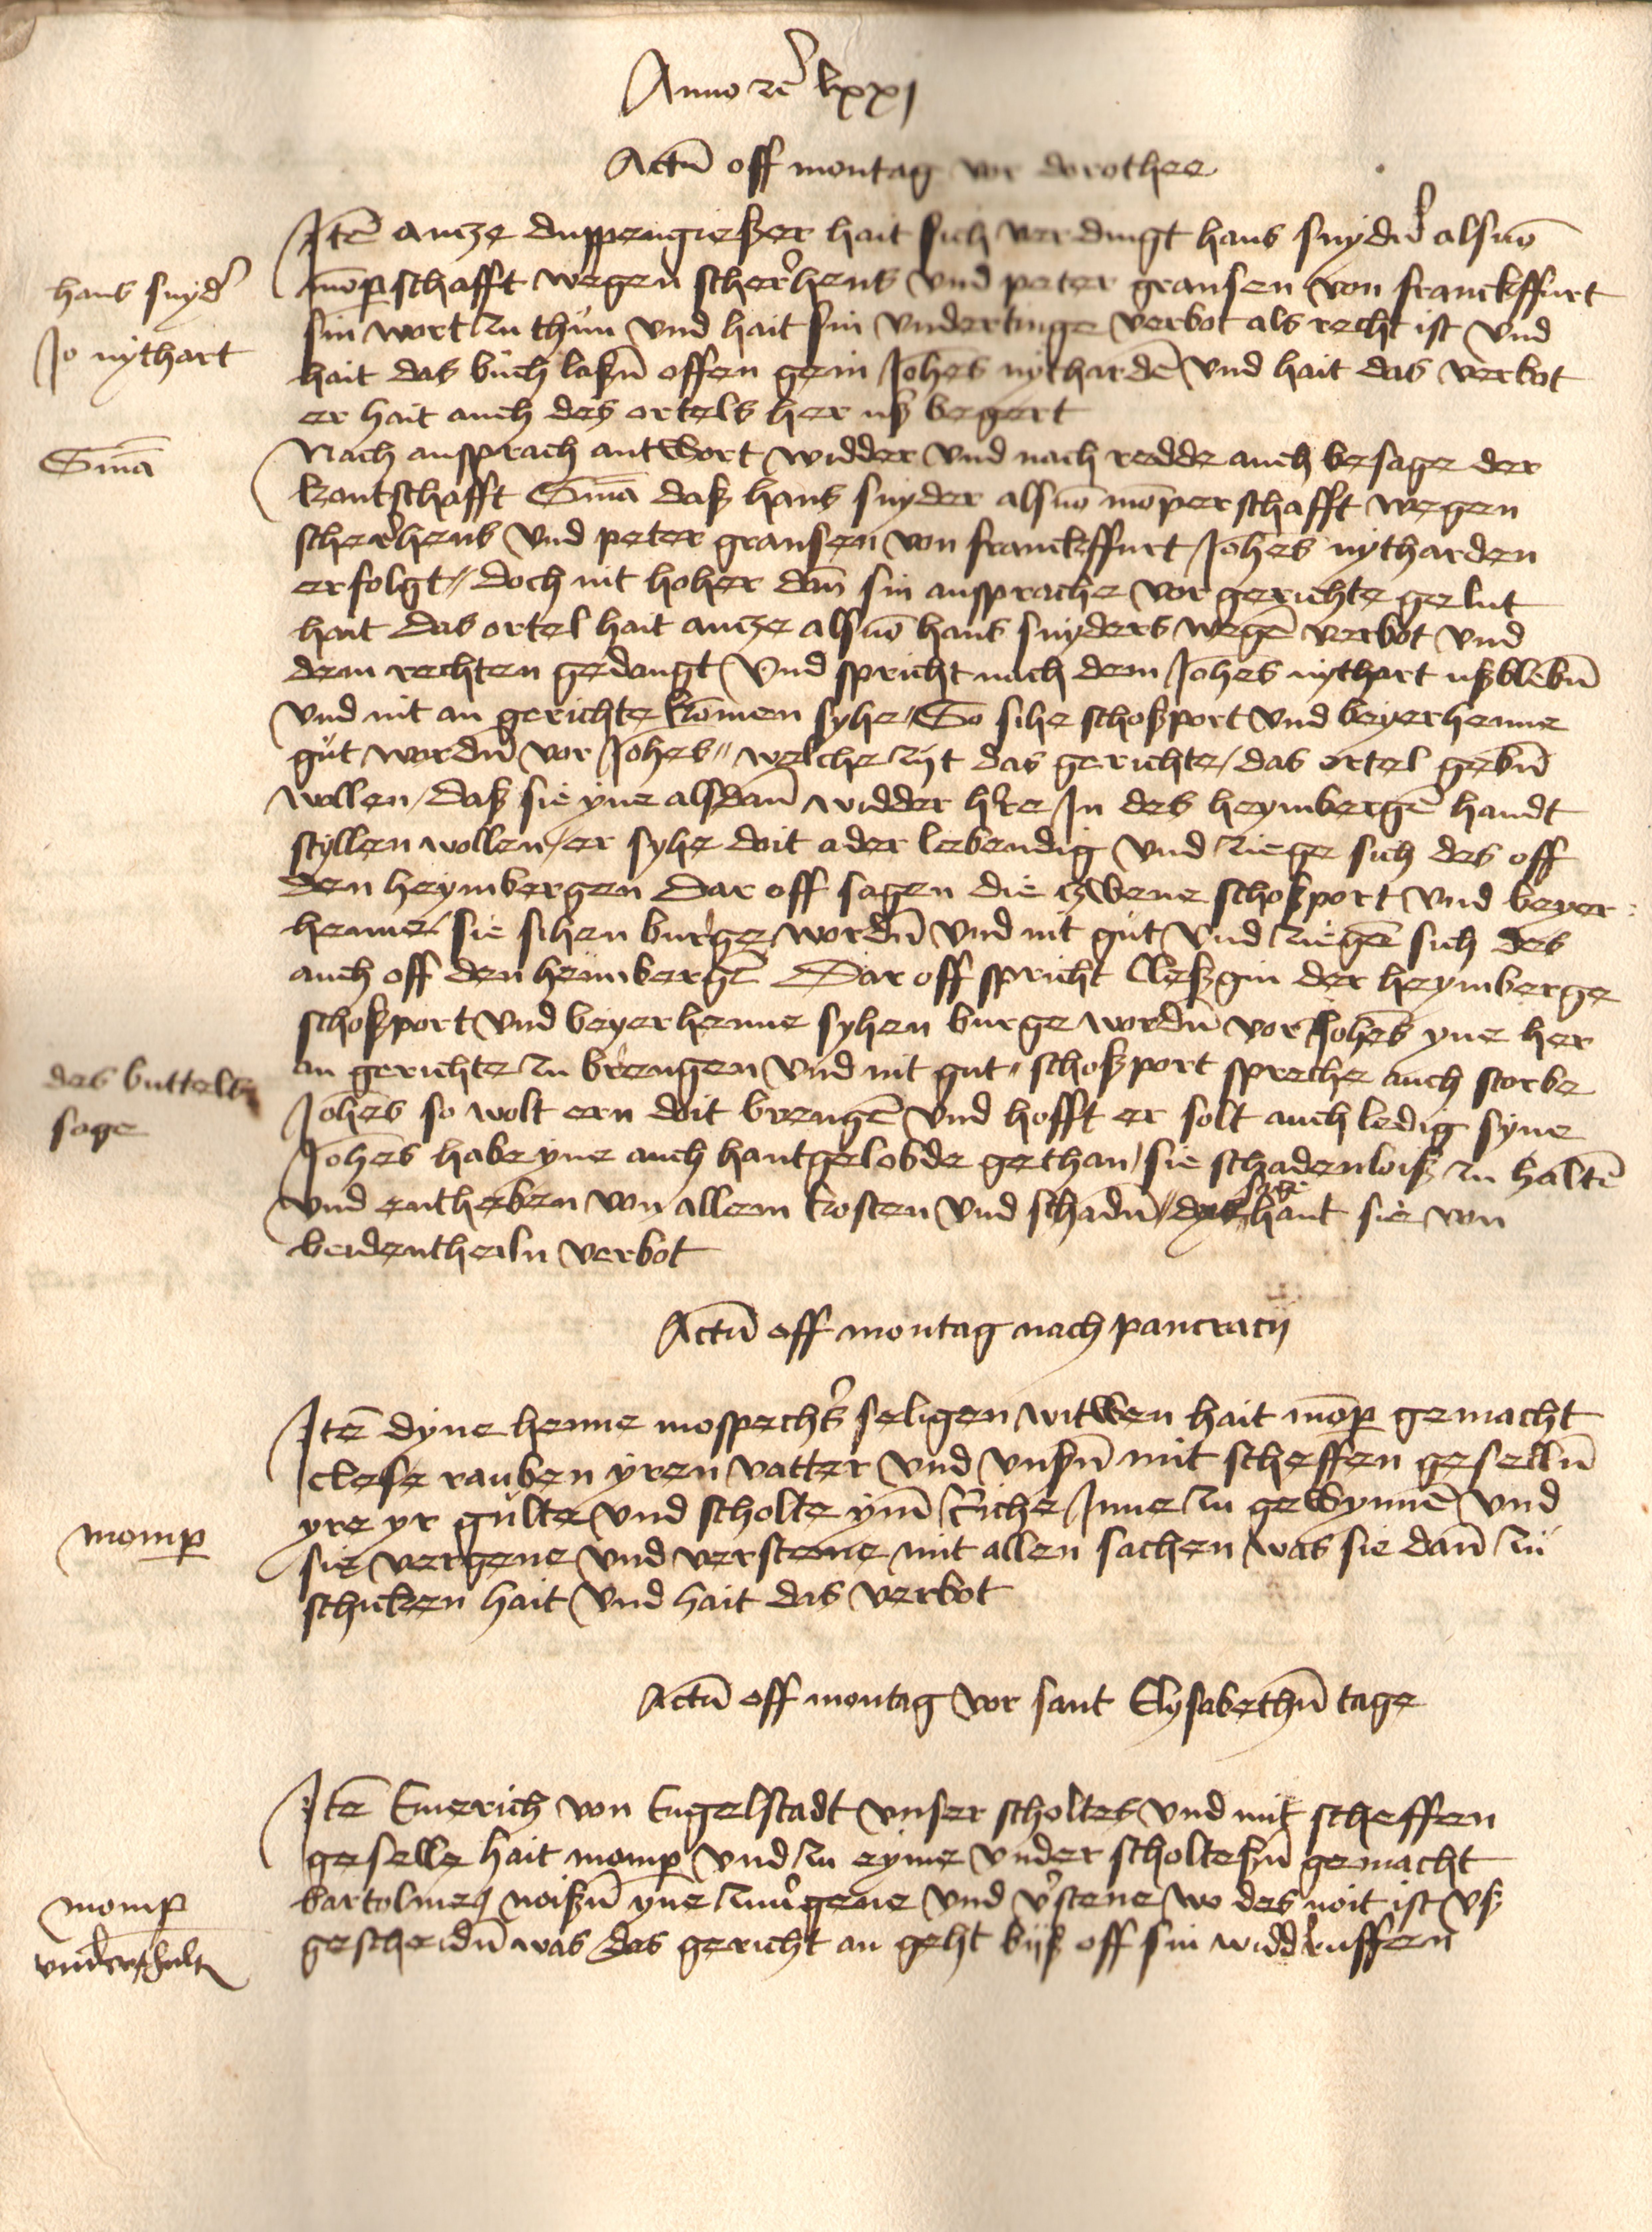 Anno rē lxxj
Actū off montag vor dorothee
Itē ancze duppengießer hait sich verdingt hans snyder alsuō
hans snyd'
mōp̱schafft wegen scherrhens vnd peter gransen von franckffurt
sin wort zu thün vnd hait sin vndertinge verbot als recht ist vnd
Jo nythart
hait das büch laßn̄ offen gein Joh̄es nythardē vnd hait das verbot
er hait auch des ortels her uß begert
Smā
Nach ansprach antwort widder vnd nach redde auch besage der
kontschafft Smā daß hans snyder alsuō mōperschafft wegen
scherrhens vnd peter gransen von franckffurt Joh̄es nytharden
erfolgt // doch nit hoher dan̄ sin ansprache vor gerichte gelut
hait das ortel hait ancze alsuō hans snyders wegē verbot vnd
dem rechten gedangt vnd spricht nach dem Joh̄es nythart ußblebn̄
vnd nit an gerichte kōmen syhe // So sihe schoßport vnd beyerhenne
güt wordn̄ vor Joh̄es // welche zijt das gerichte / das ortel gebn̄
wollen / daß sie yne alsdan̄ widder h're In des heymbergē handt
styllen wollen / er syhe doit ader lebendig vnd ziege sich des off
den heymbergen Dar off sagen die zwene schoßport vnd beyer
henne / sie sihen burge wordn̄ vnd nit güt vnd ziegē sich des
auch off den heimbergē Dar off spricht Cleßgin der heymberge
schoßport vnd beyerhenne syhen burge wordn̄ vor Joh̄es yne her
des buttelß
an gerichte zu brengen vnd nit gut // schoßport spreche auch storbe
sage
Joh̄es so wolt ern doit brengē vnd hofft er solt auch ledig syne
Joh̄es habe yne auch hantgelobde gethan / sie schadenloiß zu haltē
vnd entheben von allem kosten vnd schadn̄ // sage hant sie von
beidentheiln verbot
Actū off montag nach pancracij
Itē dyne henne mospechs seligen witwen hait mōp̱ gemacht
clese rauben yren vatter vnd vnßn̄ mit scheffen geselln̄
yre yr gulte vnd scholte ym̄ Riche Inne zu gewynnē vnd
momp̱
sie vergene vnd verstene mit allen sachen was sie dan̄ zü
schicken hait vnd hait das verbot
Actū off montag vor sant Elysabethn̄ tage
Itē Emerich von Engelstadt vnser scholtes vnd mit scheffen
geselle hait momp̱ vnd zu eyme vnder scholteßn̄ gemacht
momp̱
bartolmeꝯ noißn̄ yne zuu'gene vnd v'stene wo des noit ist vß
vnderschult
gescheidn̄ was das gericht an geht biß off sin widd'ruffen